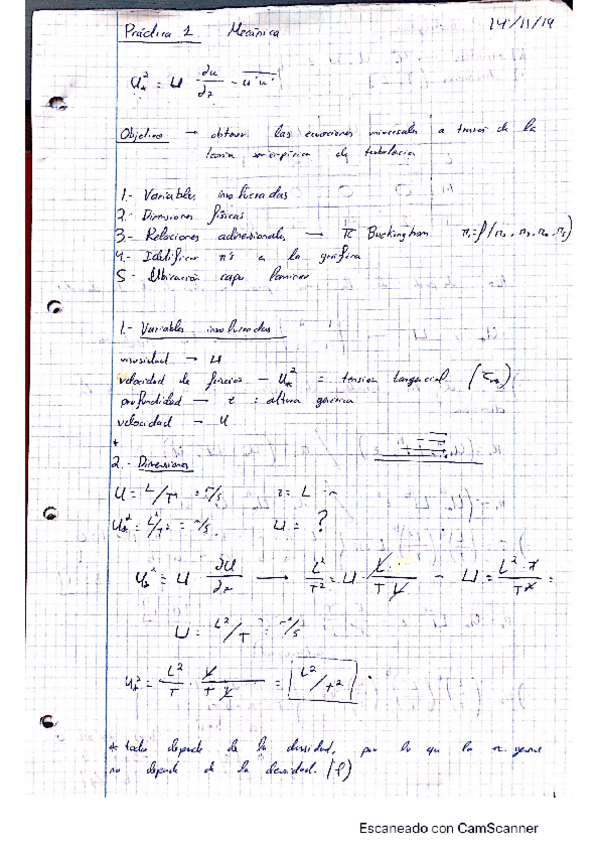 Práctica 1 Mecánica 14/11/19
U*² = ν ∂u/∂z - u'w'
Objetivo → obtener las ecuaciones universales a través de la
teoría semiempírica de turbulencia
1.- Variables involucradas
2.- Dimensiones físicas
3.- Relaciones adimensionales → π Buckingham π₁=f(π₂, π₃, π₄, π₅)
4.- Identificar π's a la gráfica
5.- Ubicación capa laminar
1.- Variables involucradas
viscosidad → ν
velocidad de fricción - U*² = tension tangencial
profundidad → z : altura
velocidad → u
*
2.- Dimensiones
U = L/T = m/s z = L
U*² = L²/T² ν = ?
U*² = ν ∂u/∂z → L²/T² = ν
ν = L²/T = m²/s
U*² = L²/T · = L²/T²
* todo depende de la densidad, por lo que la
no depende de la densidad. (ρ)
Escaneado con CamScanner